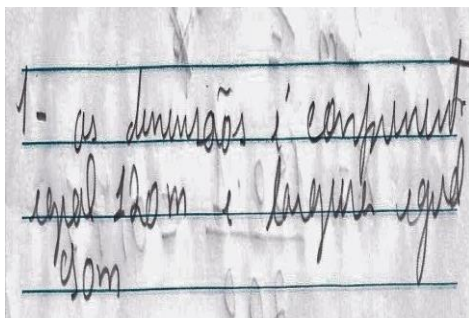 1- as dimensãos é compriment
igual 120m e largura igual
90m